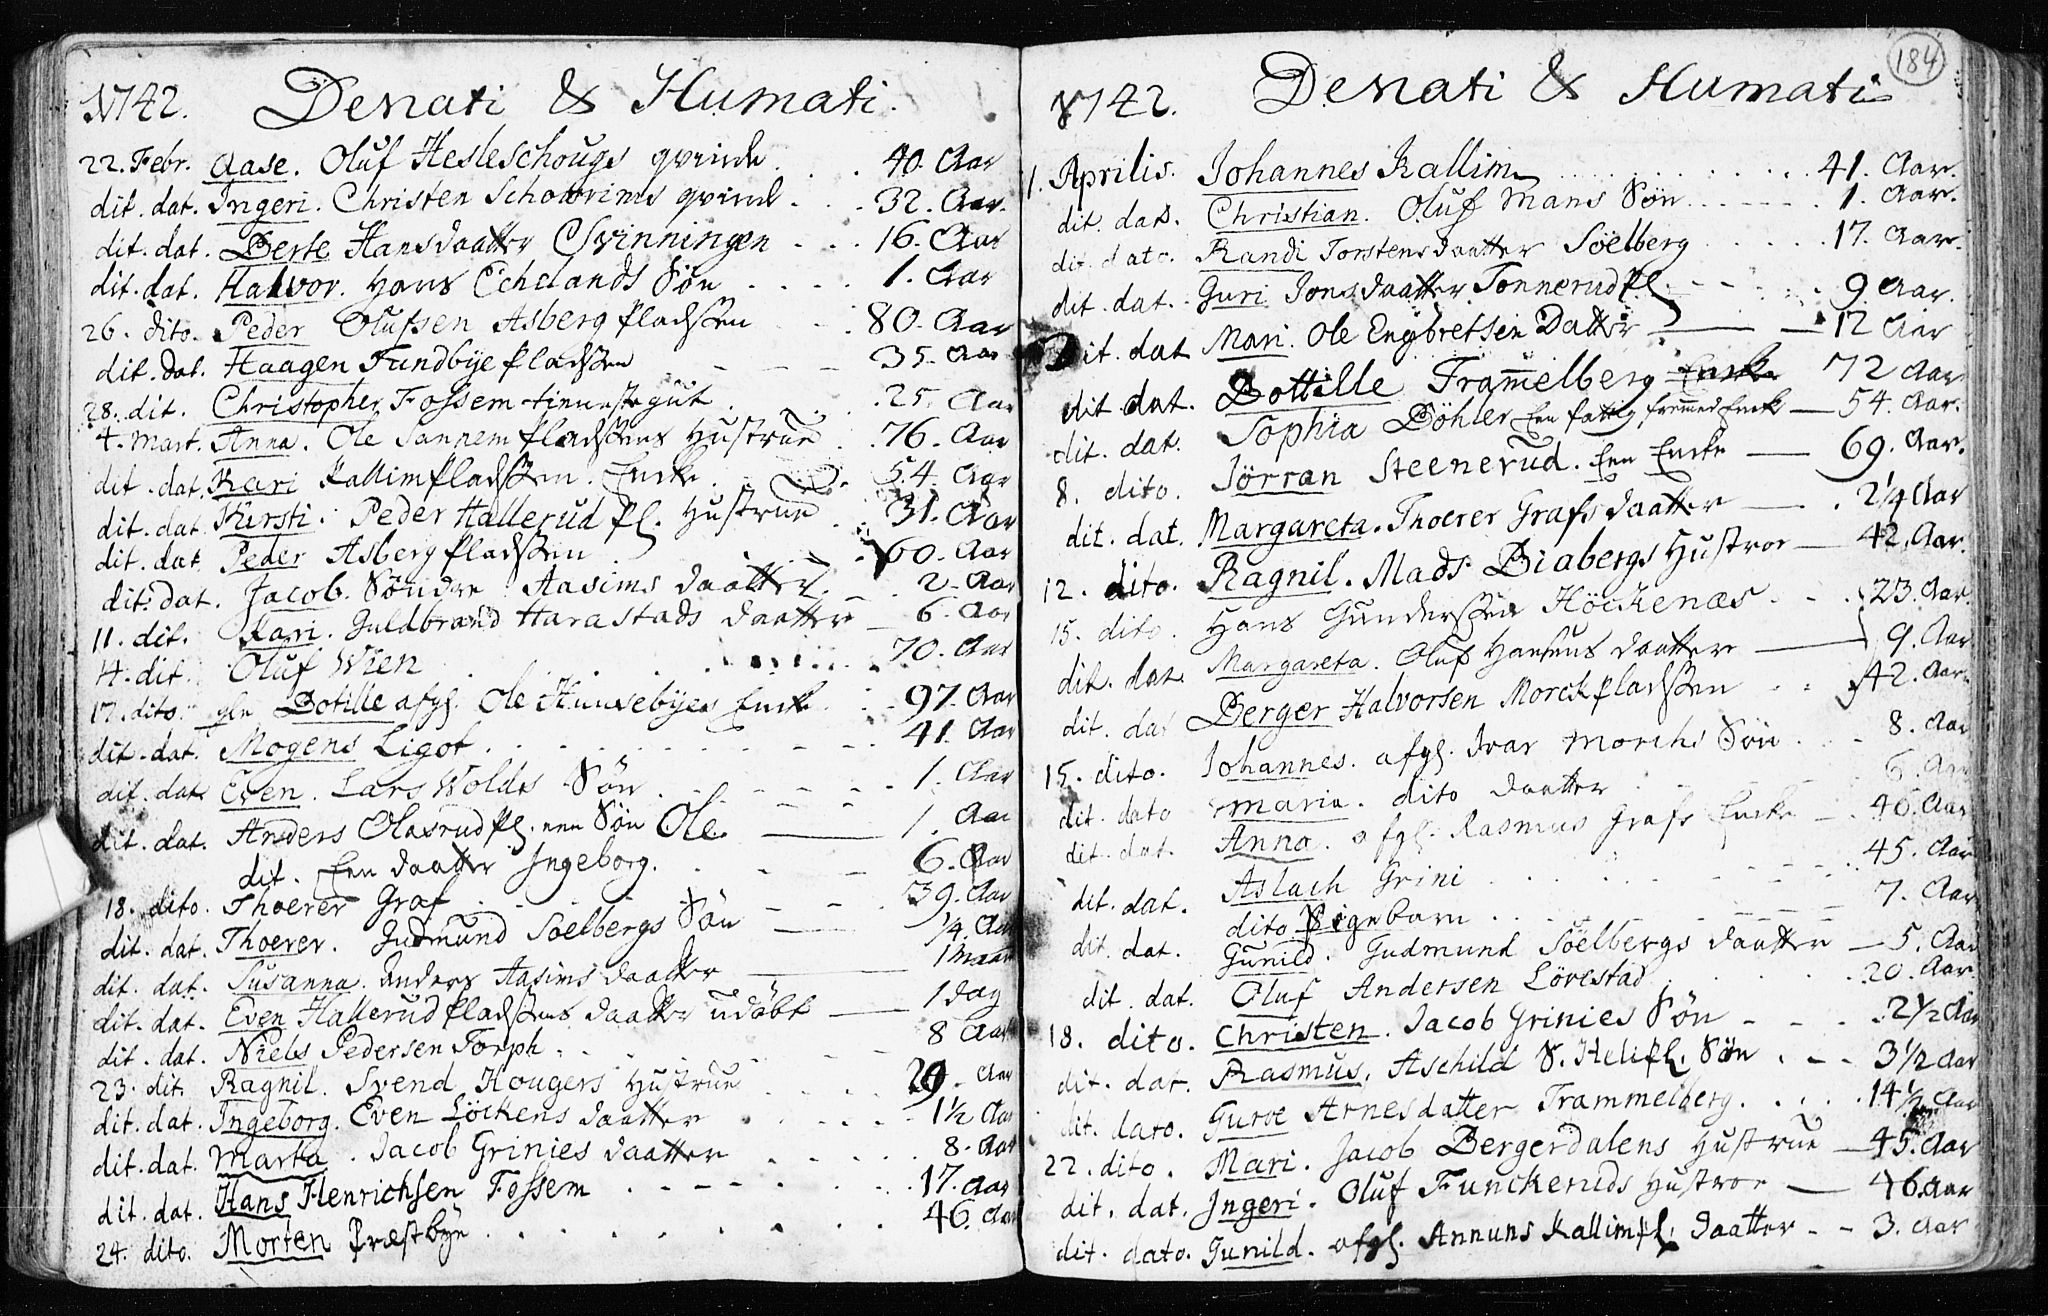 1742. Denati & Humati.
22. Febr. Aase. Oluf Hesleschougs qvinde . 40. Aar
dit. dat. Ingeri. Christen Schowrims qvinde . . . 32. Aar.
dit. dat. Berte Hansdaatter Svinningen . . . 16. Aar
dit. dat. Halvor. Hans Echelands Sön . . . . 1. Aar
26. dito. Peder Olufsen Asberg pladssen . . . 80. Aar
dit. dat. Haagen Fundbye pladssen . . . 35. Aar
28. dit. Christopher Fossem tienneste gut . . . 25. Aar
4. Mart. Anna. Ole Sannem pladsens Hustrue . 76. Aar
dit. dat. Kari Kallim pladssen. Encke . . 54. Aar
dit. dat. Kirsti. Peder Hallerud pl. Hustrue . . 31. Aar
dit. dat. Peder Asberg pladssen . . 60. Aar
dit. dat. Jacob Söndre Aasims daatter . . 2. Aar
11. dit. Kari. Guldbrand Harastads daatter 6. Aar
14. dit. Oluf Wien . . . . 70. Aar
17. dito. gln Botille afgl. Ole Huusebyes Encke . . 97. Aar
dit. dat. Mogens Ligot . . . . 41. Aar
dit. dat. Even. Lars Wolds Sön . . . . 1. Aar
dit. dat. Anders Olasrud pl. een Sön Ole. — 1. Aar
dit. Een daatter Ingeborg. . . . 6. Aar
18. dito. Thoerer Graf . . . . 39. Aar
dit. dat. Thoerer. Gudmund Soelbergs Sön — 1/4. Aar
dit. dat. Susanna. Anders Aasims daatter — 1 Maan
dit. dat. Even Hallerud pladsens daatter udöbt — 1 dag
dit. dat. Niels Pedersen Torph . . . 8 Aar
23. dit. Ragnil. Svend Kougers Hustrue . . . 29. Aar
dit. dat. Ingeborg. Even Löckens daatter . . . 1 1/2 Aar
dit. dat. Marta. Jacob Grinies daatter . . . 8. Aar
dit. dat. Hans Henrichsen Fossem . . . . 17. Aar
24. dito. Morten Præstbye . . . . 46. Aar
184
1742. Denati & Humati
1. Aprilis. Johannes Kallim . . . . 41. Aar.
dit. dat. Christian. Oluf Mans Sön . . . . 1. Aar.
dit. dato. Randi Torstensdaatter Söelberg . . . . 17. Aar.
dit. dat. Guri Jonsdaatter Tonnerud pl. . . . 9 Aar.
dit. dat Mari. Ole Engbretsen Datter — 12 Aar
dit dat. Bottille Trammelberg Encke 72 Aar
dit. dat. Sophia Böhler Een fattig fremmed Encke — 54. Aar.
8. dito. Jörran Steenerud. Een Encke — 69. Aar.
dit. dat. Margareta. Thoerer Grafs daatter — . 2 1/4 Aar
12. dito. Ragnil. Mads Biabergs Hustroe — 42. Aar.
15. dito. Hans Gunderssen Höckenæs . . . 23. Aar.
dit. dat. Margareta. Oluf Hansens daatter — 9. Aar
dit. dat Berger Halvorsen Morck pladssen . . . 42. Aar.
15. dito. Johannes. afgl. Ivar Morchs Sön . . . 8. Aar
dit. dato Maria. dito daatter . . 6. Aar
dit. dat. Anna. afgl. Rasmus Grafs Encke — 40. Aar
dit. dat. Aslach Grini . . . . 45. Aar
dit. dat. dito Pigebarn . . . . 7. Aar
Gunild. Gudmund Söelbergs daatter — 5. Aar
dit. dat. Oluf Andersen Lövestad . . . . 20. Aar
18. dito. Christen. Jacob Grinies Sön . . . 2 1/2 Aar
dit. dat. Rasmus. Aschild S. Heli pl. Sön . . . 3 1/2 Aar
dit. dato. Guroe Arnesdatter Trammelberg. . . . 14 1/2 Aar
22. dito. Mari. Jacob Bergerdalens Hustrue — 45. Aar
dit. dat. Ingeri. Oluf Funckeruds Hustroe — 46 Aar
dit. dato. Gunild. afgl. Annuns Kallim pl. daatter . . 3. Aar